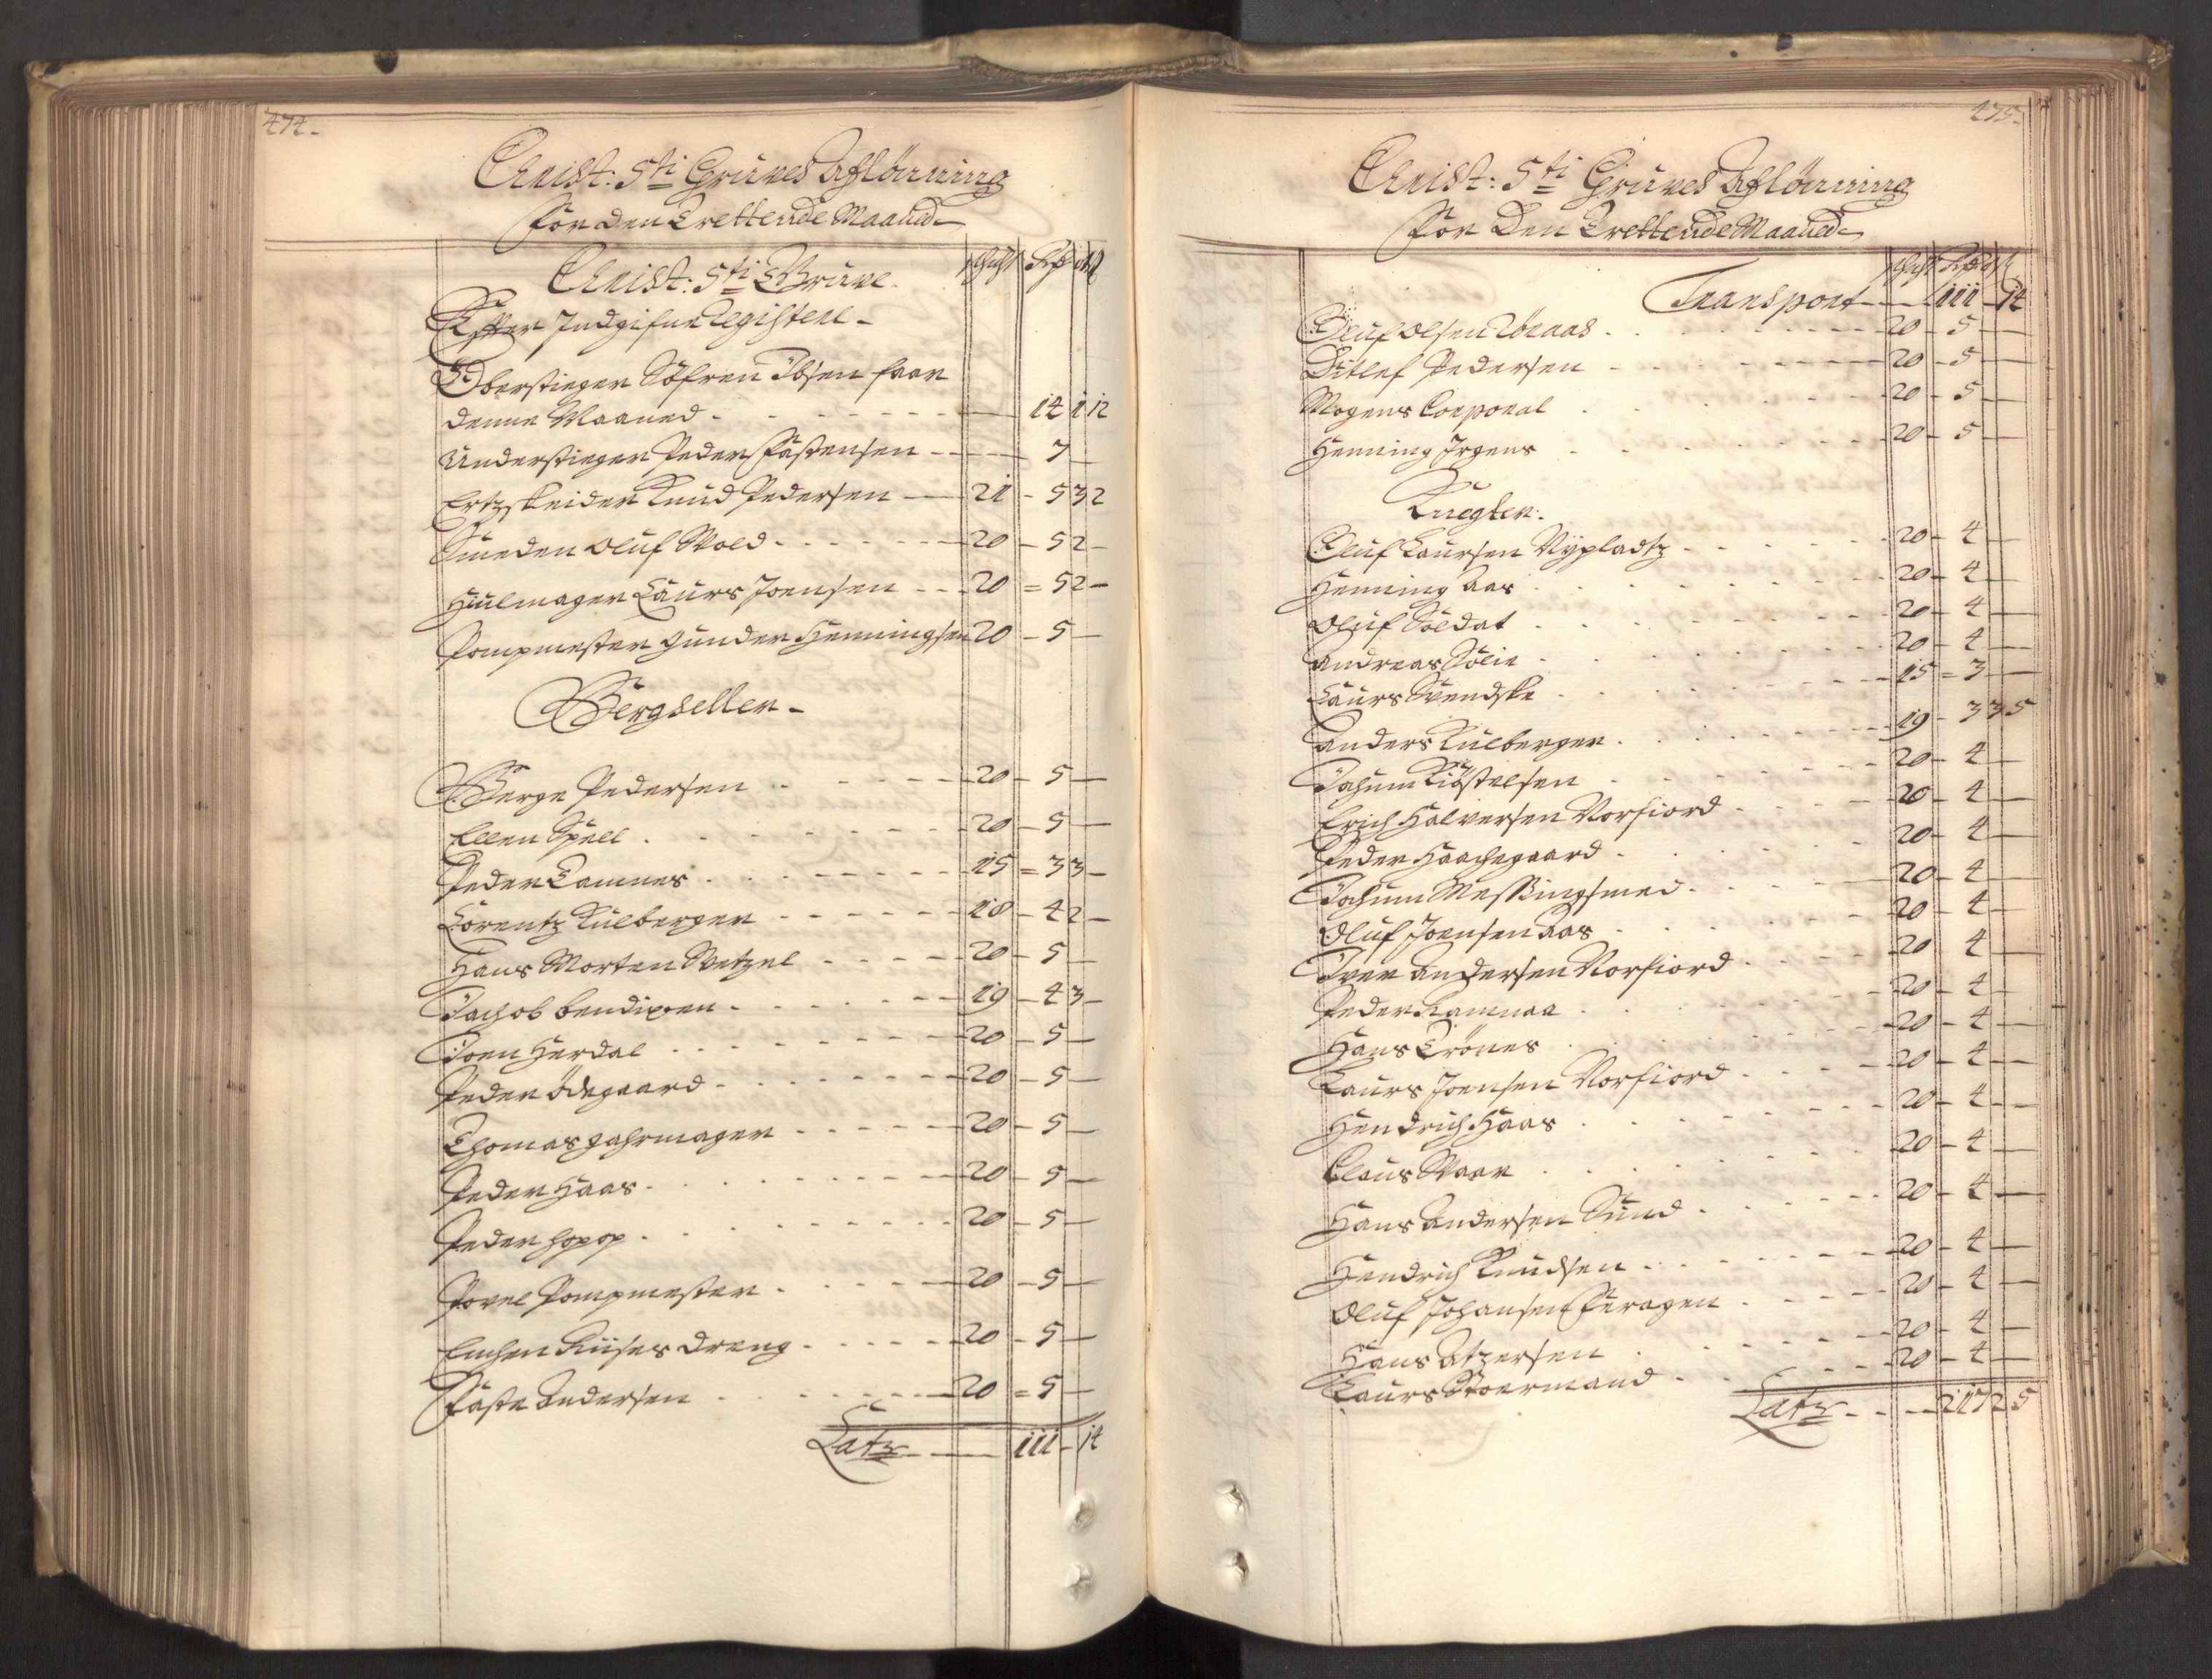 474.
Christ: 5ti Gruves Aflönning
for den Trettende Maaned
Christ: 5ti Gruve.
Efter Indgifne Register
Oberstieger Söfren Ibsen faar
denne Maaned 14 1 12
Understieger Peder Fastensen 7
Ertzskeider Knud Pedersen 21 - 5 3 2
Smeden Oluf Wold 20 - 5 2 -
Hiulmager Laurs Joensen 20 = 5 2 -
Pompmester Gunder Henningsen 20 - 5 -
Bergseller
Berge Pedersen 20 - 5 -
Ellen Spell 20 - 5 -
Peder Lamnes 15 = 3 3 -
Lorentz Kulberger 18 - 4 2 -
Hans Morten Wetzel 20 - 5 -
Jachob Bendixen 19 - 4 3 -
Joen Herdal 20 - 5 -
Peder Ödegaard 20 - 5 -
Thomas Gahrmager 20 - 5 -
Peder Haas 20 - 5 -
Peder 20 - 5 -
Povel Pompmester 20 - 5 -
Riises Dreng 20 - 5 -
Faste Andersen 20 = 5 -
Latr 111 - 14
475.
Christ: 5ti Gruves Aflönning
for den Trettende Maaned
Transport 111 - 14
Oluf Olsen 20 - 5 -
Ditlef Pedersen 20 - 5 -
Mogens Corporal 20 - 5 -
Henning Irgens 20 - 5 -
Knegter.
Oluf Laursen Nypladtz 20 - 4 -
Henning Aas 20 - 4 -
Oluf Soldat 20 - 4 -
Andreas Solie 20 - 4 -
Laurs Svendske 15 = 3 -
Anders Kulberger 19 - 3 3 5
Jochum Kiöstelsen 20 - 4 -
Erich Halversen Norfiord 20 - 4 -
Peder Haachegaard 20 - 4 -
Jochum Messingsmed 20 - 4 -
Oluf Joensen Aas 20 - 4 -
Iver Andersen Norfiord 20 4 -
Peder Ramnaa 20 - 4 -
Hans Trönes 20 - 4 -
Laurs Joensen Norfiord 20 - 4 -
Hendrich Haas 20 - 4 -
Claus Waar 20 - 4 -
Hans Andersen Sund 20 - 4 -
Hendrich Knudsen 20 - 4 -
Oluf Johansen Feragen 20 - 4 -
Hans Atzersen 20 - 4 -
Laurs Stoermand 20 - 4 -
Latr 217 2 5